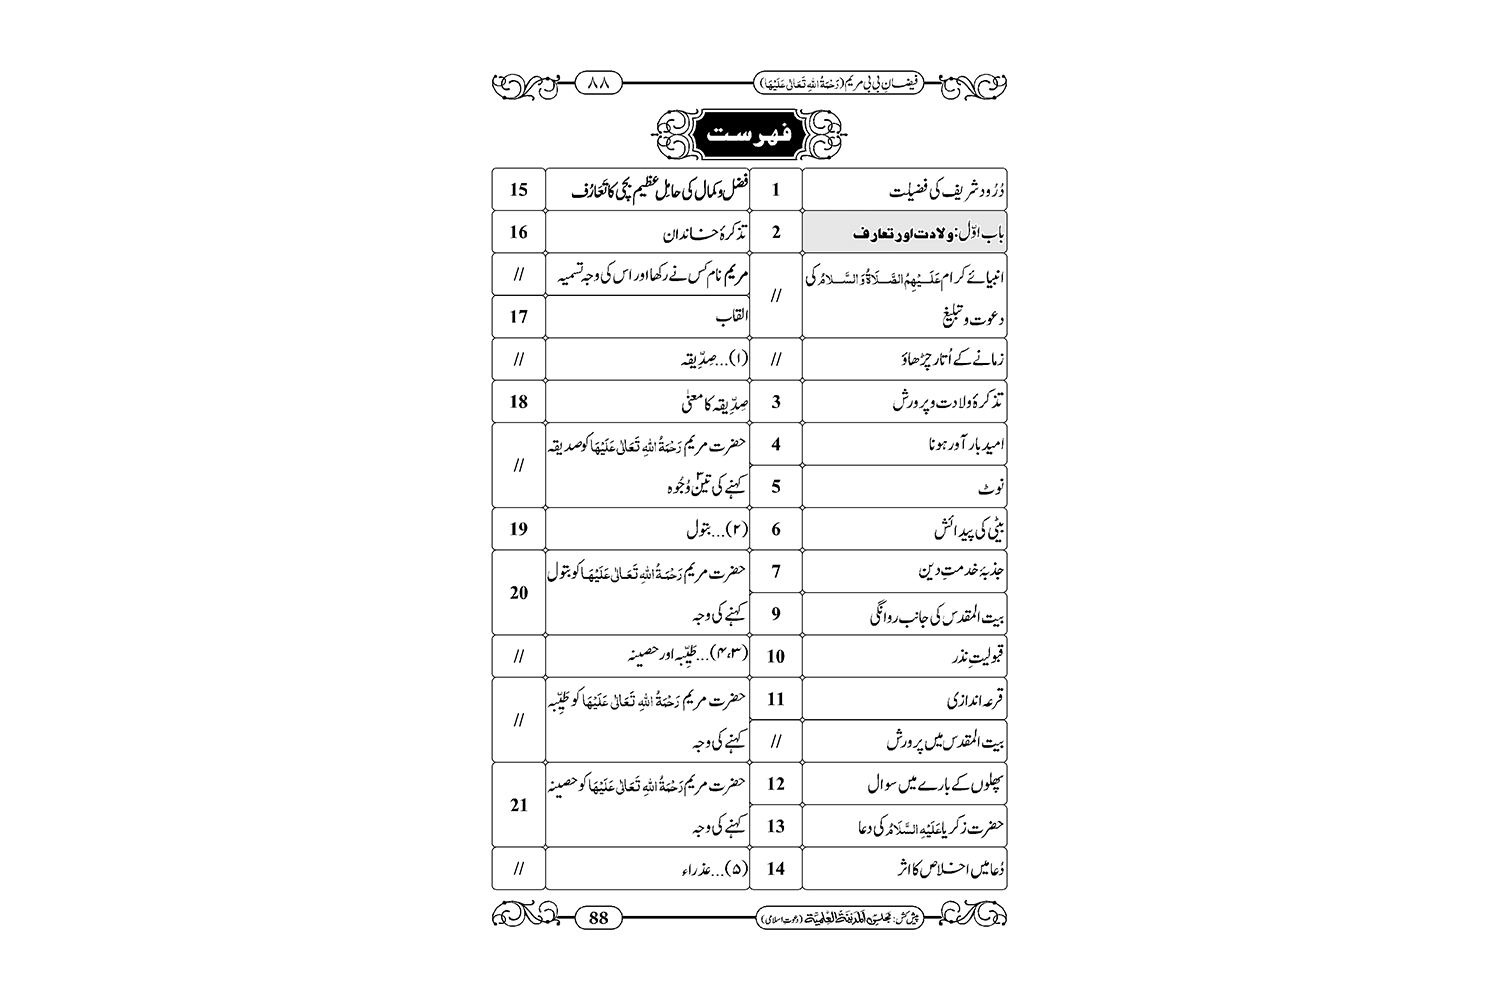 فیضانِ بی بی مریم (رَحْمَةُ اللهِ تَعَالٰی عَلَيْهَا) ٨٨
فہرست
دُرُود شریف کی فضیلت 1
باب اوّل: ولادت اور تعارف 2
انبیائے کرام عَلَيْهِمُ الصَّلَاةُ وَ السَّلَامُ کی
دعوت و تبلیغ //
زمانے کے اُتار چڑھاؤ //
تذکرۂ ولادت و پرورش 3
امید بار آور ہونا 4
نوٹ 5
بیٹی کی پیدائش 6
جذبۂ خدمتِ دین 7
بیت المقدس کی جانب روانگی 9
قبولیتِ نذر 10
قرعہ اندازی 11
بیت المقدس میں پرورش //
پھلوں کے بارے میں سوال 12
حضرت زکریا عَلَيْهِ السَّلَامُ کی دعا 13
دُعا میں اخلاص کا اثر 14
فضل و کمال کی حامِل عظیم بچی کا تَعَارُف 15
تذکرۂ خاندان 16
مریم نام کس نے رکھا اور اس کی وجہ تسمیہ //
القاب 17
(۱)...صِدِّیقہ //
صِدِّیقہ کا معنٰی 18
حضرت مریم رَحْمَةُ اللهِ تَعَالٰی عَلَيْهَا کو صدیقہ
کہنے کی تین۳ وُجُوہ //
(۲)...بتول 19
حضرت مریم رَحْمَةُ اللهِ تَعَالٰی عَلَيْهَا کو بتول
کہنے کی وجہ 20
(۳،۴)...طَیِّبہ اور حصینہ //
حضرت مریم رَحْمَةُ اللهِ تَعَالٰی عَلَيْهَا کو طَیِّبہ
کہنے کی وجہ //
حضرت مریم رَحْمَةُ اللهِ تَعَالٰی عَلَيْهَا کو حصینہ
کہنے کی وجہ 21
(۵)...عذراء //
پیش کش: مجلس اَلْمَدِیْنَةُ الْعِلْمِیَّة (دعوتِ اسلامی) 88